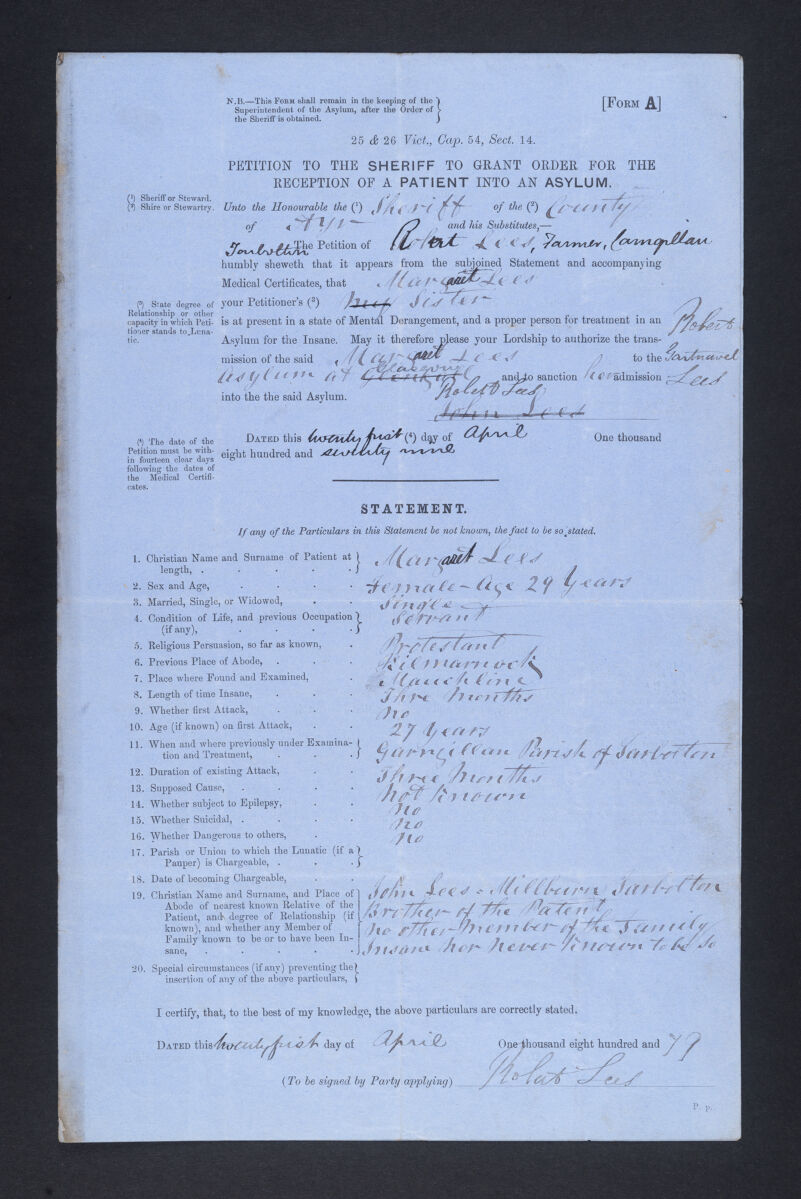 N.B.—This Form shall remain in the keeping of the
Superintendent of the Asylum, after the Order of
the Sheriff is obtained.
[Form A]
25 & 26 Vict., Cap. 54, Sect. 14.
PETITION TO THE SHERIFF TO GRANT ORDER FOR THE
RECEPTION OF A PATIENT INTO AN ASYLUM.
(¹) Sheriff or Steward.
(²) Shire or Stewartry.
Unto the Honourable the (¹) Sheriff of the (²) County
of Ayr and his Substitutes,—
Tarbolton The Petition of Robert Lees, Farmer,
humbly sheweth that it appears from the subjoined Statement and accompanying
Medical Certificates, that Margaret Lees
(³) State degree of
Relationship or other
capacity in which Peti-
tioner stands to Luna-
tic.
your Petitioner's (³) Sister
is at present in a state of Mental Derangement, and a proper person for treatment in an
Asylum for the Insane. May it therefore please your Lordship to authorize the trans-
mission of the said Margaret Lees to the Gartnavel
Asylum at Glasgow and to sanction her admission
into the the said Asylum.
Robert
Lees
Robert Lees
John Lees
(⁴) The date of the
Petition must be with-
in fourteen clear days
following the dates of
the Medical Certifi-
cates.
Dated this twenty first (⁴) day of April One thousand
eight hundred and seventy nine
STATEMENT.
If any of the Particulars in this Statement be not known, the fact to be so stated.
1. Christian Name and Surname of Patient at
length, . . . . . Margaret Lees
2. Sex and Age, . . . . Female - Age 29 Years
3. Married, Single, or Widowed, . . Single
4. Condition of Life, and previous Occupation
(if any), . . . . Servant
5. Religious Persuasion, so far as known, . Protestant
6. Previous Place of Abode, . . . Kilmarnock
7. Place where Found and Examined, . Mauchline
8. Length of time Insane, . . . Thre Months
9. Whether first Attack, . . . No
10. Age (if known) on first Attack, . . 27 Years
11. When and where previously under Examina-
tion and Treatment, . . . Garngillan Parish of Tarbolton
12. Duration of existing Attack, . . Three Months
13. Supposed Cause, . . . . Not Known
14. Whether subject to Epilepsy, . . No
15. Whether Suicidal, . . . . No
16. Whether Dangerous to others, . . No
17. Parish or Union to which the Lunatic (if a
Pauper) is Chargeable, . . .
18. Date of becoming Chargeable, . .
19. Christian Name and Surname, and Place of
Abode of nearest known Relative of the
Patient, and degree of Relationship (if
known), and whether any Member of
Family known to be or to have been In-
sane, . . . . .
John Lees - Millburn Tarbolton
Brother of the Patent
No other Member of the Family
Insane nor never Known to be so
20. Special circumstances (if any) preventing the
insertion of any of the above particulars,
I certify, that, to the best of my knowledge, the above particulars are correctly stated.
Dated this twenty first day of April One thousand eight hundred and 79
(To be signed by Party applying) Robert Lees
P. P.